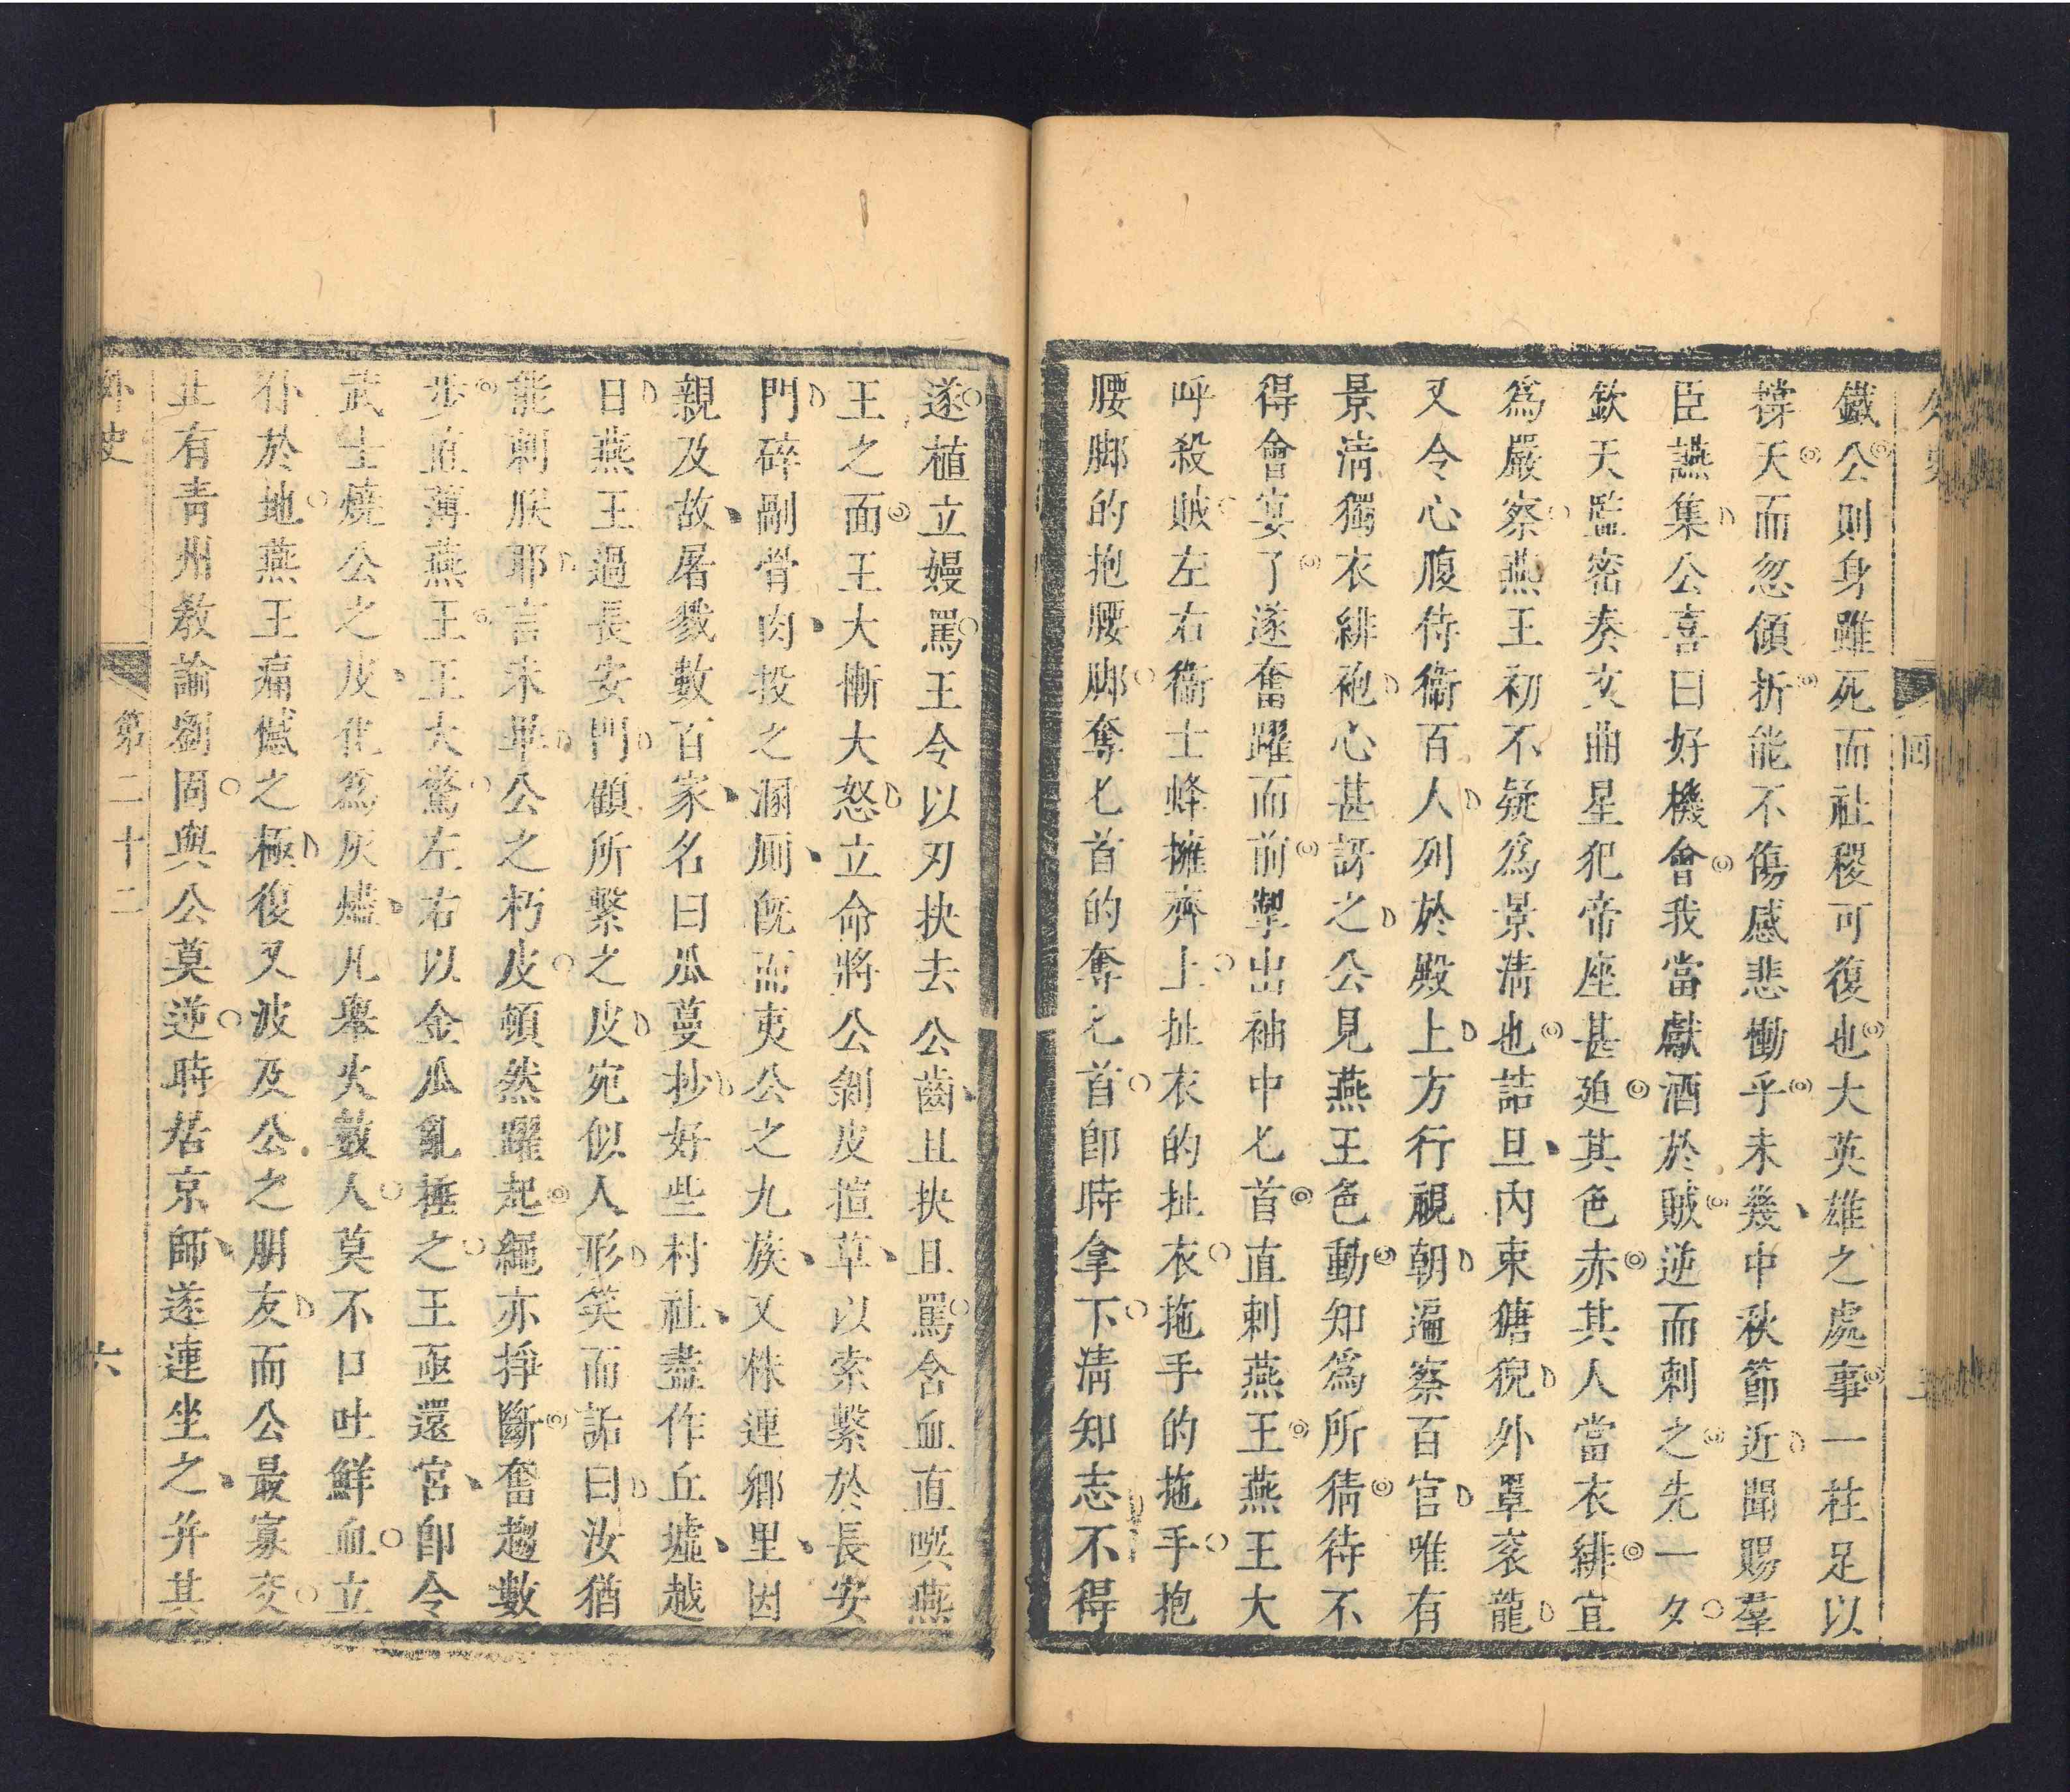 鐵公則身雖死而社稷可復也大英雄之處事一柱足以
撐天而忽傾折能不傷感悲慟乎未幾中秋節近聞賜羣
臣讌集公喜曰好機會我當獻酒於賊逆而刺之先一夕
欽天監密奏文曲星犯帝座甚廹其色赤其人當衣緋宜
爲嚴察燕王初不疑爲景清也詰旦內束猺猊外罩衮龍
又令心腹侍衞百人列於殿上方行視朝遍察百官唯有
景清獨衣緋袍心甚訝之公見燕王色動知爲所猜待不
得會宴了遂奮躍而前掣出袖中匕首直刺燕王燕王大
呼殺賊左右衞士蜂擁齊上扯衣的扯衣拖手的拖手抱
腰脚的抱腰脚奪匕首的奪匕首卽時拿下清知志不得
遂植立嫚罵王令以刃抉去公齒且抉且罵含血直噀燕
王之面王大慚大怒立命將公剝皮揎草以索繫於長安
門碎剮骨肉投之溷厠旣而夷公之九族又株連鄉里因
親及故屠戮數百家名曰瓜蔓抄好些村社盡作丘墟越
日燕王過長安門顧所繫之皮宛似人形笑而詬曰汝猶
能刺朕耶言未畢公之朽皮頓然躍起繩亦掙斷奮趨數
步直薄燕王王大驚左右以金瓜亂搥之王亟還宮卽令
武士燒公之皮化爲灰燼凡舉火數人莫不口吐鮮血立
仆於地燕王痛憾之極復又波及公之朋友而公最寡交
止有青州教諭劉固與公莫逆時居京師遂連坐之幷其
外史
第二十二
六